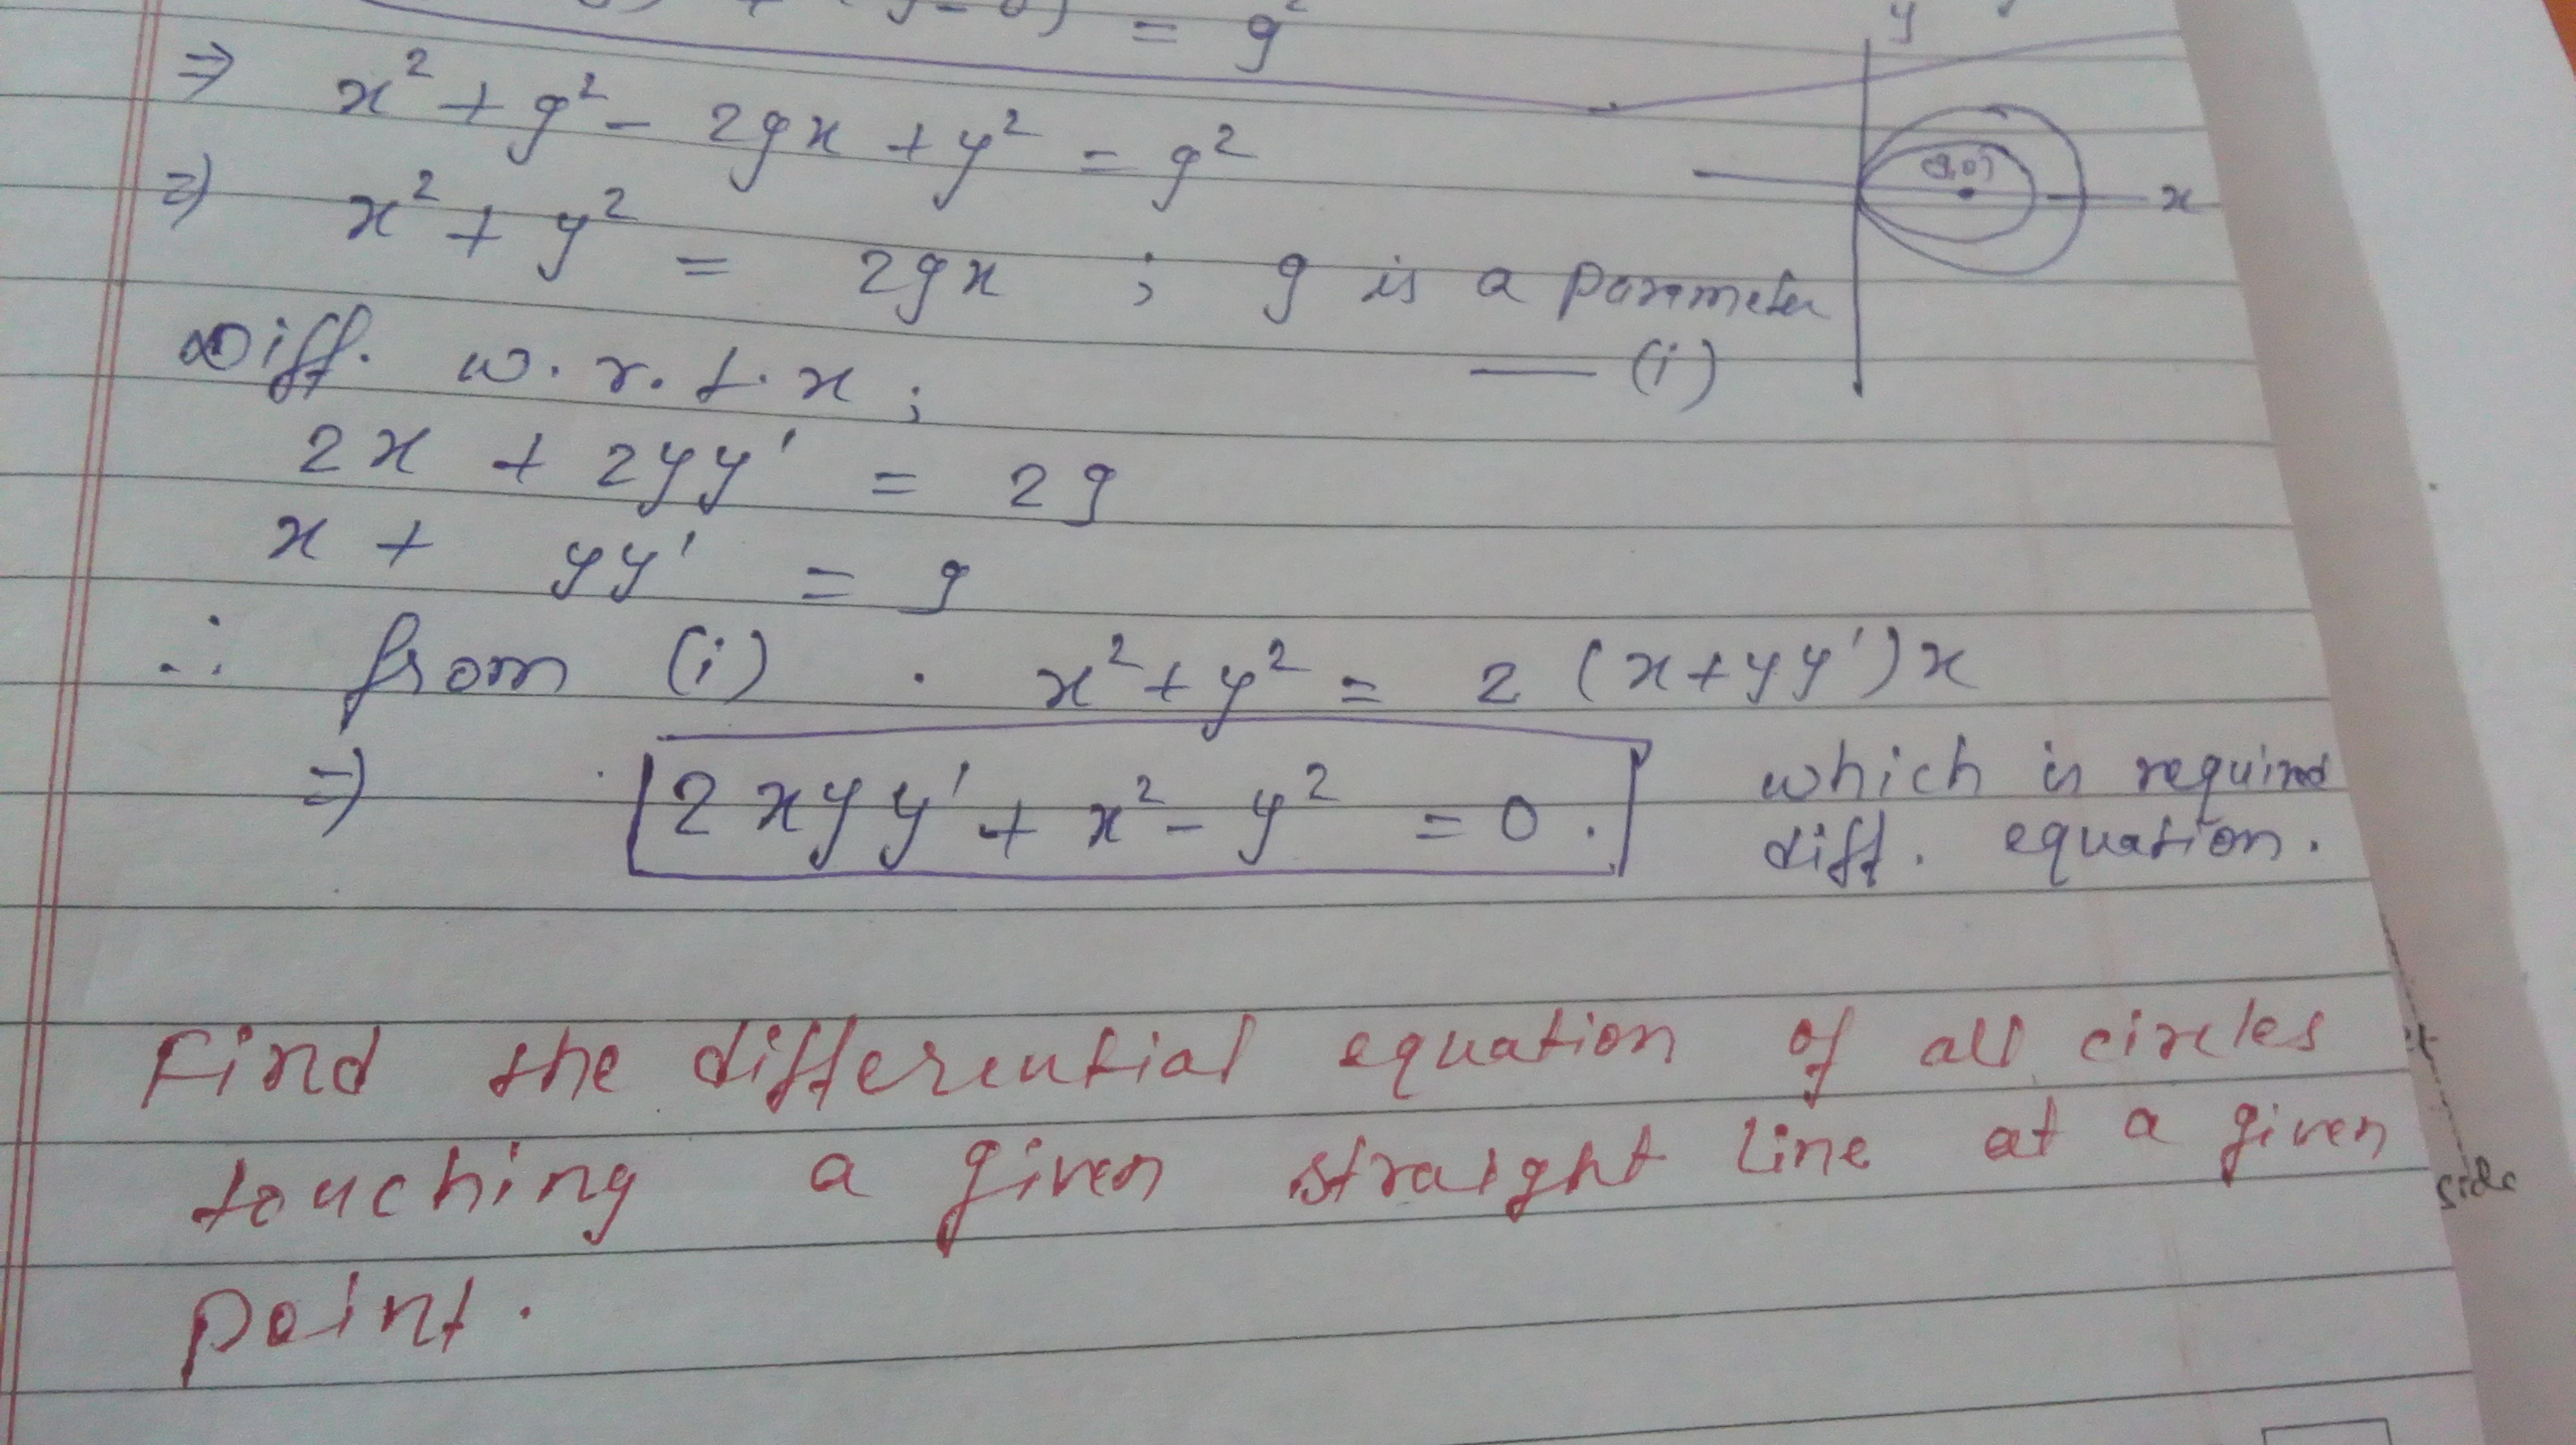 = g²
y
⇒ x² + g² - 2gx + y² = g²
⇒ x² + y² = 2gx ; g is a parameter
x
Diff. w.r.t. x ; — (i)
2x + 2yy' = 2g
x + yy' = g
∴ from (i) . x² + y² = 2 (x+yy')x
⇒ 2xyy' + x² - y² = 0. which is required
diff. equation.
Find the differential equation of all circles
touching a given straight line at a given
side
point.